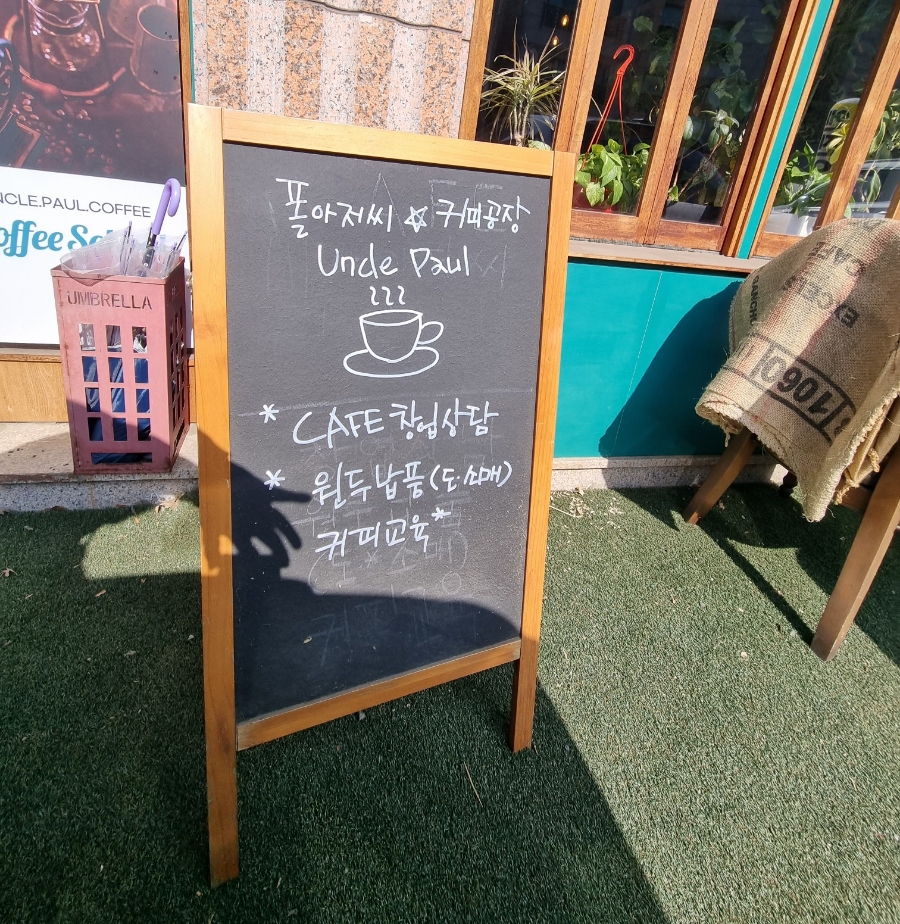 폴아저씨 ☆ 커피공장
Uncle Paul
* CAFE 창업상담
* 원두납품(도·소매)
커피교육*
NCLE.PAUL.COFFEE
offee
UMBRELLA
EXCELS
CAFE
1060